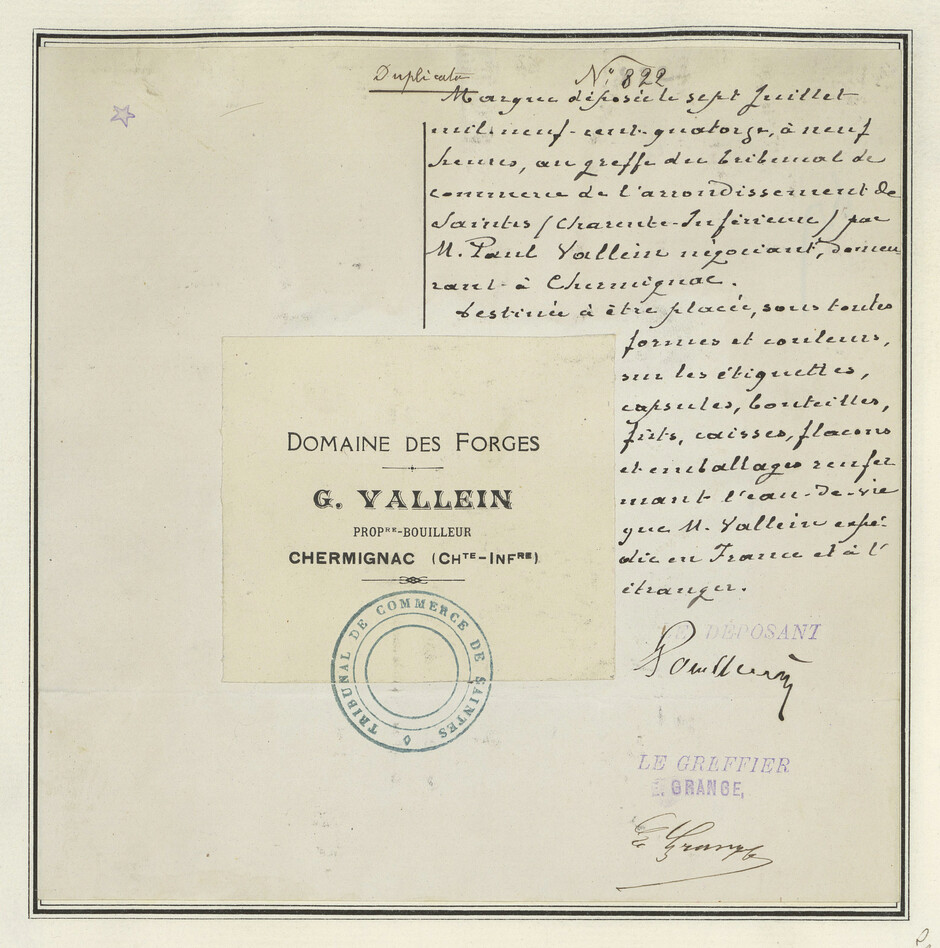 Duplicata
No 822
Marque déposée le sept Juillet
mil neuf-cent-quatorze, à neuf
heures, au greffe du tribunal de
commerce de l'arrondissement de
Saintes (Charente-Inférieure) par
M. Paul Vallein négociant, demeu-
rant à Chermignac.
Destinée à être placée, sous toutes
formes et couleurs,
sur les étiquettes,
capsules, bouteilles,
fûts, caisses, flacons
et emballages renfer
mant l'eau-de-vie
que M. Vallein expé-
die en France et à l'
étranger.
DOMAINE DES FORGES
G. VALLEIN
PROPRE-BOUILLEUR
CHERMIGNAC (CHTE-INFRE)
TRIBUNAL DE COMMERCE DE SAINTES
LE DÉPOSANT
LE GREFFIER
E. GRANGE,
E. Grange